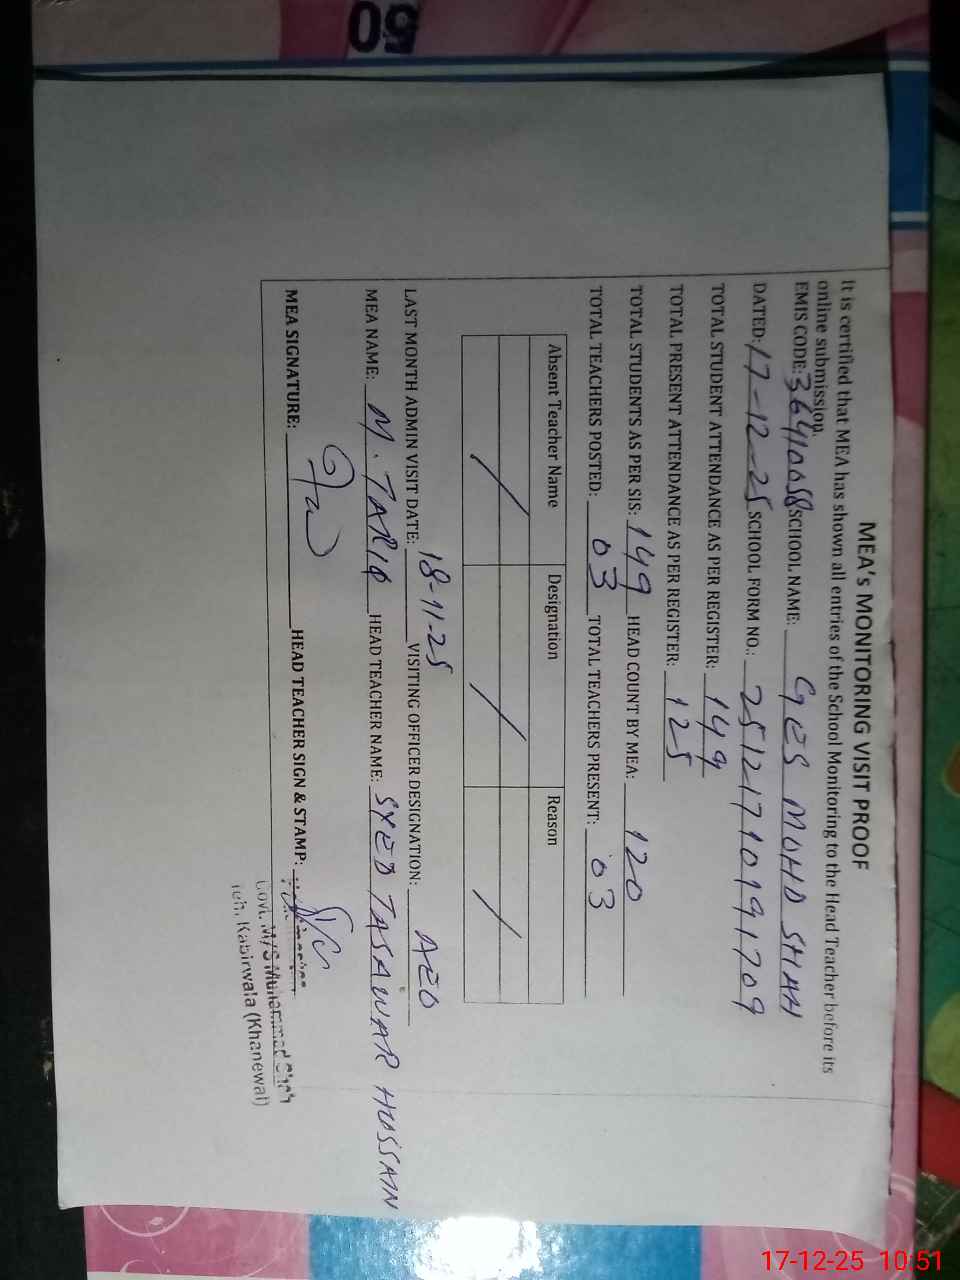 50
MEA's MONITORING VISIT PROOF
It is certified that MEA has shown all entries of the School Monitoring to the Head Teacher before its
online submission.
EMIS CODE: 36410058 SCHOOL NAME: GES MOHD SHAH
DATED: 17-12-25 SCHOOL FORM NO.: 2512171019 1709
TOTAL STUDENT ATTENDANCE AS PER REGISTER: 149
TOTAL PRESENT ATTENDANCE AS PER REGISTER: 125
TOTAL STUDENTS AS PER SIS: 149 HEAD COUNT BY MEA: 120
TOTAL TEACHERS POSTED: 03 TOTAL TEACHERS PRESENT: 03
Absent Teacher Name Designation Reason
/ / /
LAST MONTH ADMIN VISIT DATE: 18-11-25 VISITING OFFICER DESIGNATION: AEO
MEA NAME: M. TARIQ HEAD TEACHER NAME: SYED TASAWAR HUSSAIN
MEA SIGNATURE: HEAD TEACHER SIGN & STAMP:
Govt. M/S Muhammad Shah
Teh. Kabirwala (Khanewal)
17-12-25 10:51